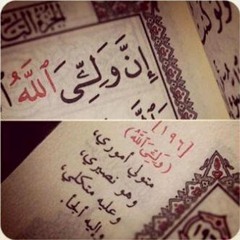 إِنَّ وَلِـِّۧىَ ٱللَّهُ
[١٩٦]
(وَلِـِّۧىَ ٱللَّهُ)
متولي أموري،
وهو نصيري،
وعليه متكلي،
وإليه ألجأ.